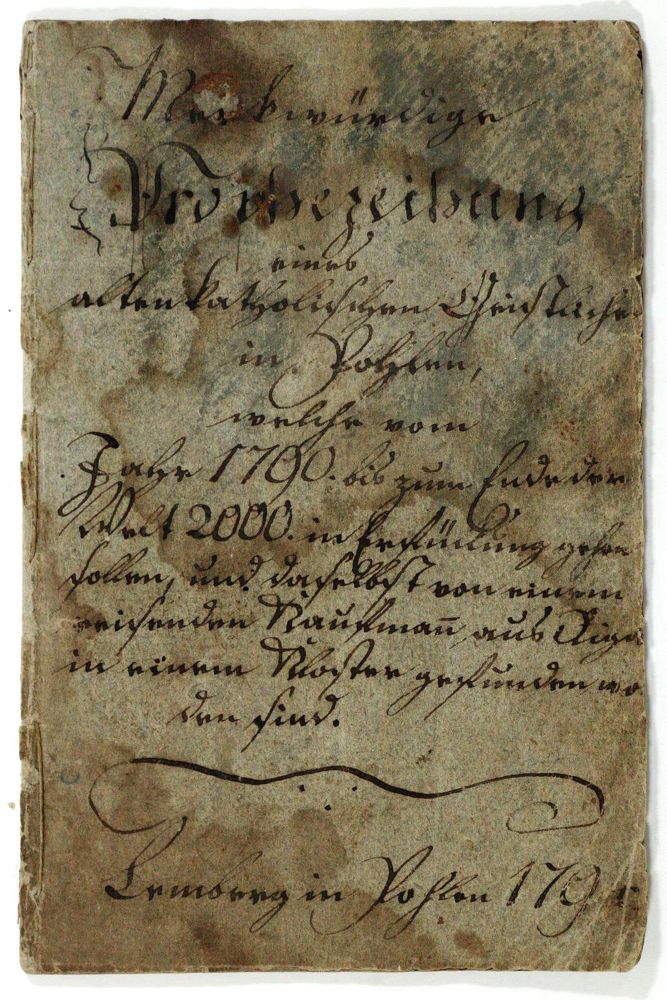 Merkwürdige
Prophezeihung
eines
alten katholischen Geistliche
in Pohlen,
welche vom
Jahr 1790. bis zum Ende der
Welt 2000. in Erfüllung gehen
sollen, und daselbst von einem
reisenden Kaufmañ aus Riga
in einem Kloster gefunden wo
den sind.
Lemberg in Pohlen 179